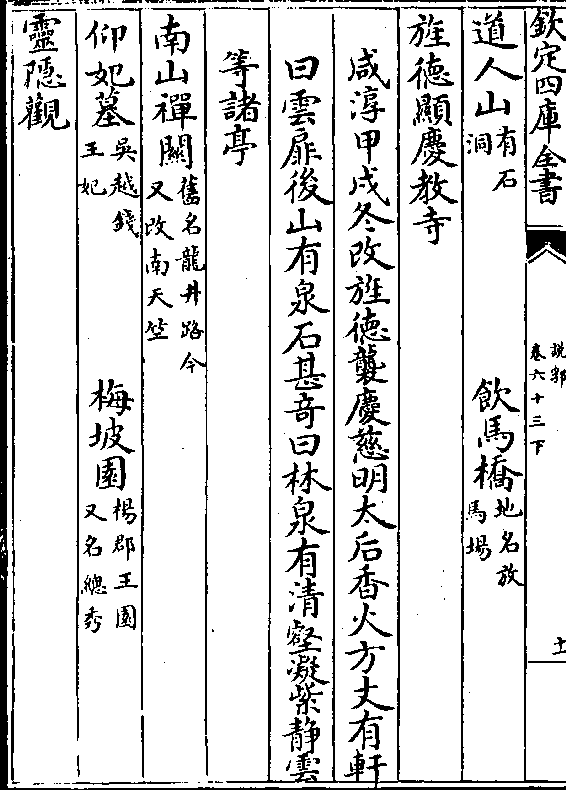 欽定四庫全書
説郛
卷六十三下
十一
道人山有石洞
飲馬橋地名放馬場
旌德顯慶教寺
咸淳甲戌冬改旌德襲慶慈明太后香火方丈有軒
曰雲扉後山有泉石甚竒曰林泉有清壑凝紫静雲
等諸亭
南山禪關舊名龍井路今又改南天竺
仰妃墓吳越錢王妃
梅坡園楊郡王園又名總秀
靈隠觀